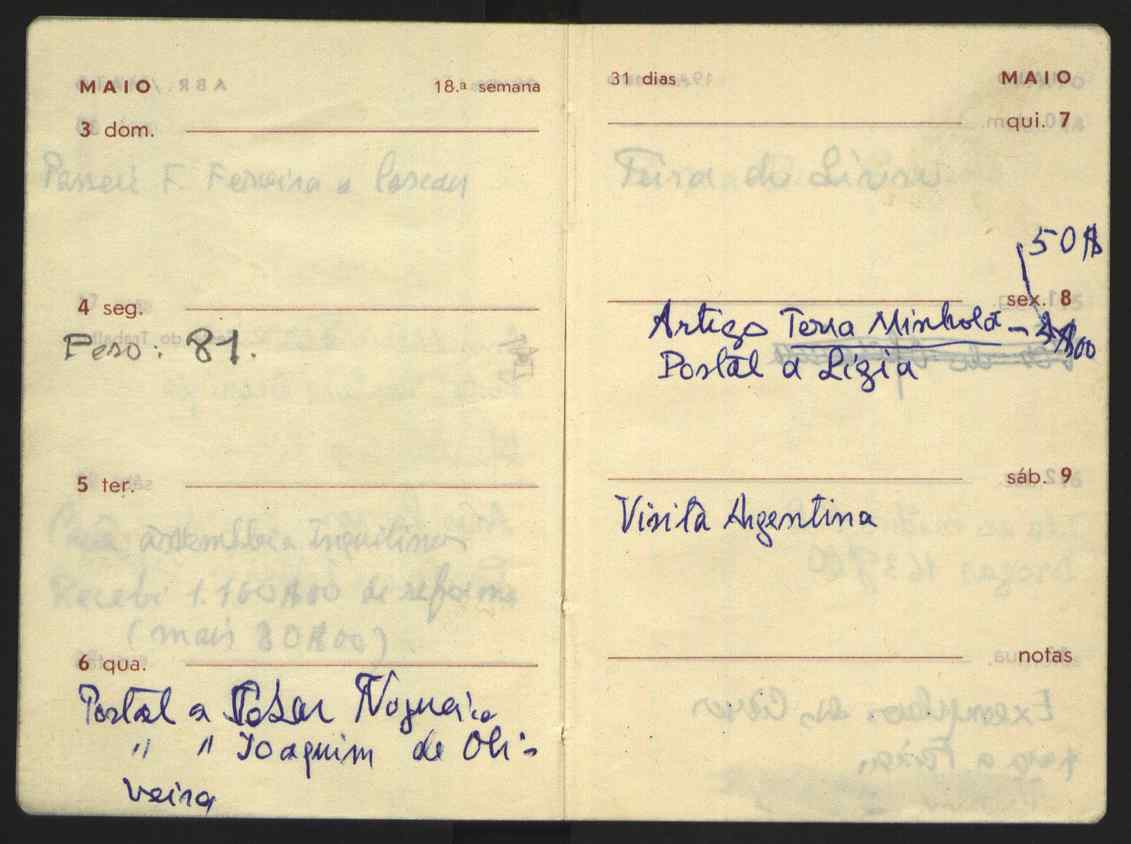 MAIO 18.ª semana
3 dom.
Passei F. Ferreira a Cascais
4 seg.
Peso: 81.
5 ter.
assembleia Inquilinos
Recebi 1.160$00 de reforma
(mais 80$00)
6 qua.
Postal a Nogueira
" " Joaquim de Oli-
veira
31 dias MAIO
qui. 7
Feira do Livro
50$
sex. 8
Artigo Terra Minhota -
Postal a Ligia
sáb. 9
Visita Argentina
notas